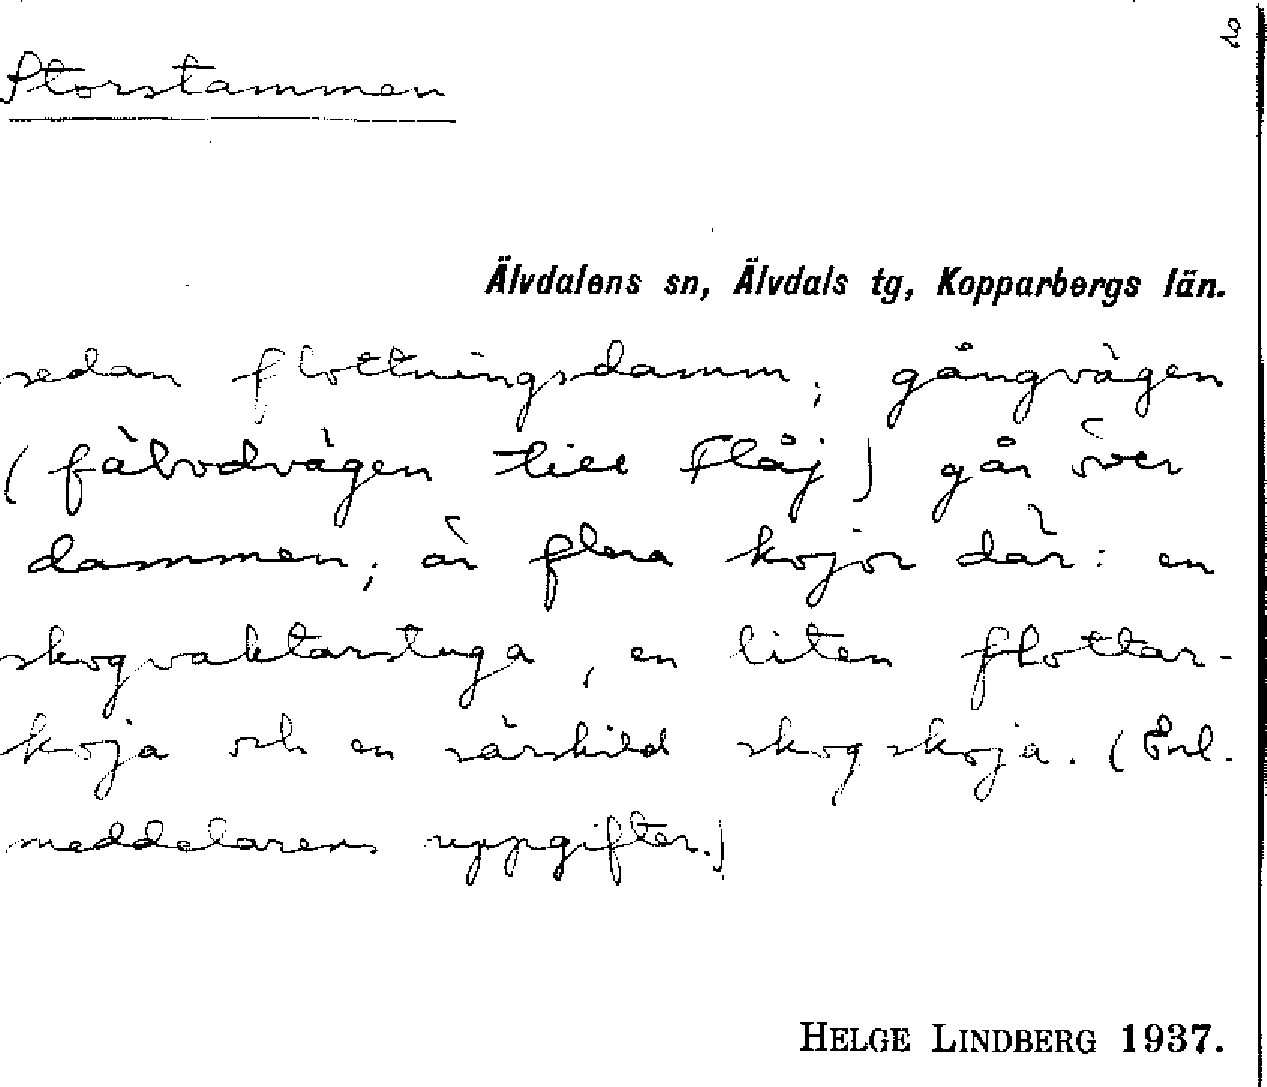 Storstammen
Älvdalens sn, Älvdals tg, Kopparbergs län.
sedan flottningsdamm; gångvägen
(fäbodvägen till Flåj) går över
dammen; är flera kojor där: en
skogvaktarstuga, en liten flottar-
koja och en särskild skogskoja. (Enl.
meddelarens uppgifter.)
HELGE LINDBERG 1937.